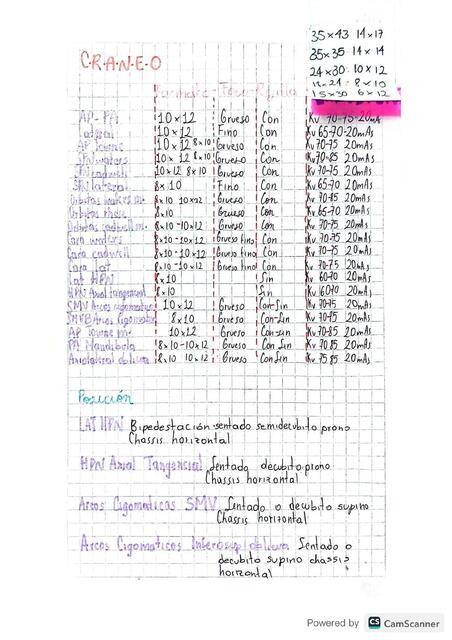 C.R.A.N.E.O
35x43 14x17
35x35 14x14
24x30 10x12
18-24 8x10
15x30 6x12
Formato - Foco - Rejilla
AP-PA 10x12 Grueso Con Kv 70-75-20mA
Lateral 10x12 Fino Con Kv 65-70-20mAs
AP Towne 10x12 8x10 Grueso Con Kv 70-75 20mAs
SPN waters 10x12 8x10 Grueso Con Kv 70-85 20mAs
SPN cadwell 10x12 8x10 Grueso Con Kv 70-75 20mAs
SPN lateral 8x10 Fino Con Kv 65-70 20mAs
Orbitas waters mc 8x10 10x12 Grueso Con Kv 70-85 20mAs
Orbitas rhese 8x10 Grueso Con Kv 65-70 20mAs
Orbitas cadwell mc 8x10-10x12 Grueso Con Kv 70-75 20mAs
Cara waters 8x10-10x12 Grueso fino Con Kv 70-75 20mAs
Cara cadwell 8x10-10x12 Grueso fino Con Kv 70-75 20mAs
Cara Lat 8x10-10x12 Grueso fino Con Kv 70-75 20mAs
Lat HPN 8x10 Sin Kv 60-70 20mAs
HPN Axial tangencial 8x10 Sin Kv 60-70 20mAs
SMV Arcos cigomaticos 10x12 Grueso Con-Sin Kv 70-75 20mAs
Arcos Cigomaticos 8x10 Grueso Con-Sin Kv 70-85 20mAs
AP towne mc 10x12 Grueso Con-sin Kv 70-85 20mAs
PA Mandibula 8x10-10x12 Grueso Con Sin Kv 70-85 20mAs
Axiolateral oblicua 8x10 10x12 Grueso Con Sin Kv 75 85 20mAs
Posición
LAT HPN Bipedestación-sentado semidecubito prono
Chassis horizontal
HPN Axial Tangencial Sentado decubito prono
Chassis horizontal
Arcos Cigomaticas SMV Sentado o decubito supino
Chassis horizontal
Arcos Cigomaticos Interosup oblicua Sentado o
decubito supino chassis
horizontal
Powered by CS CamScanner